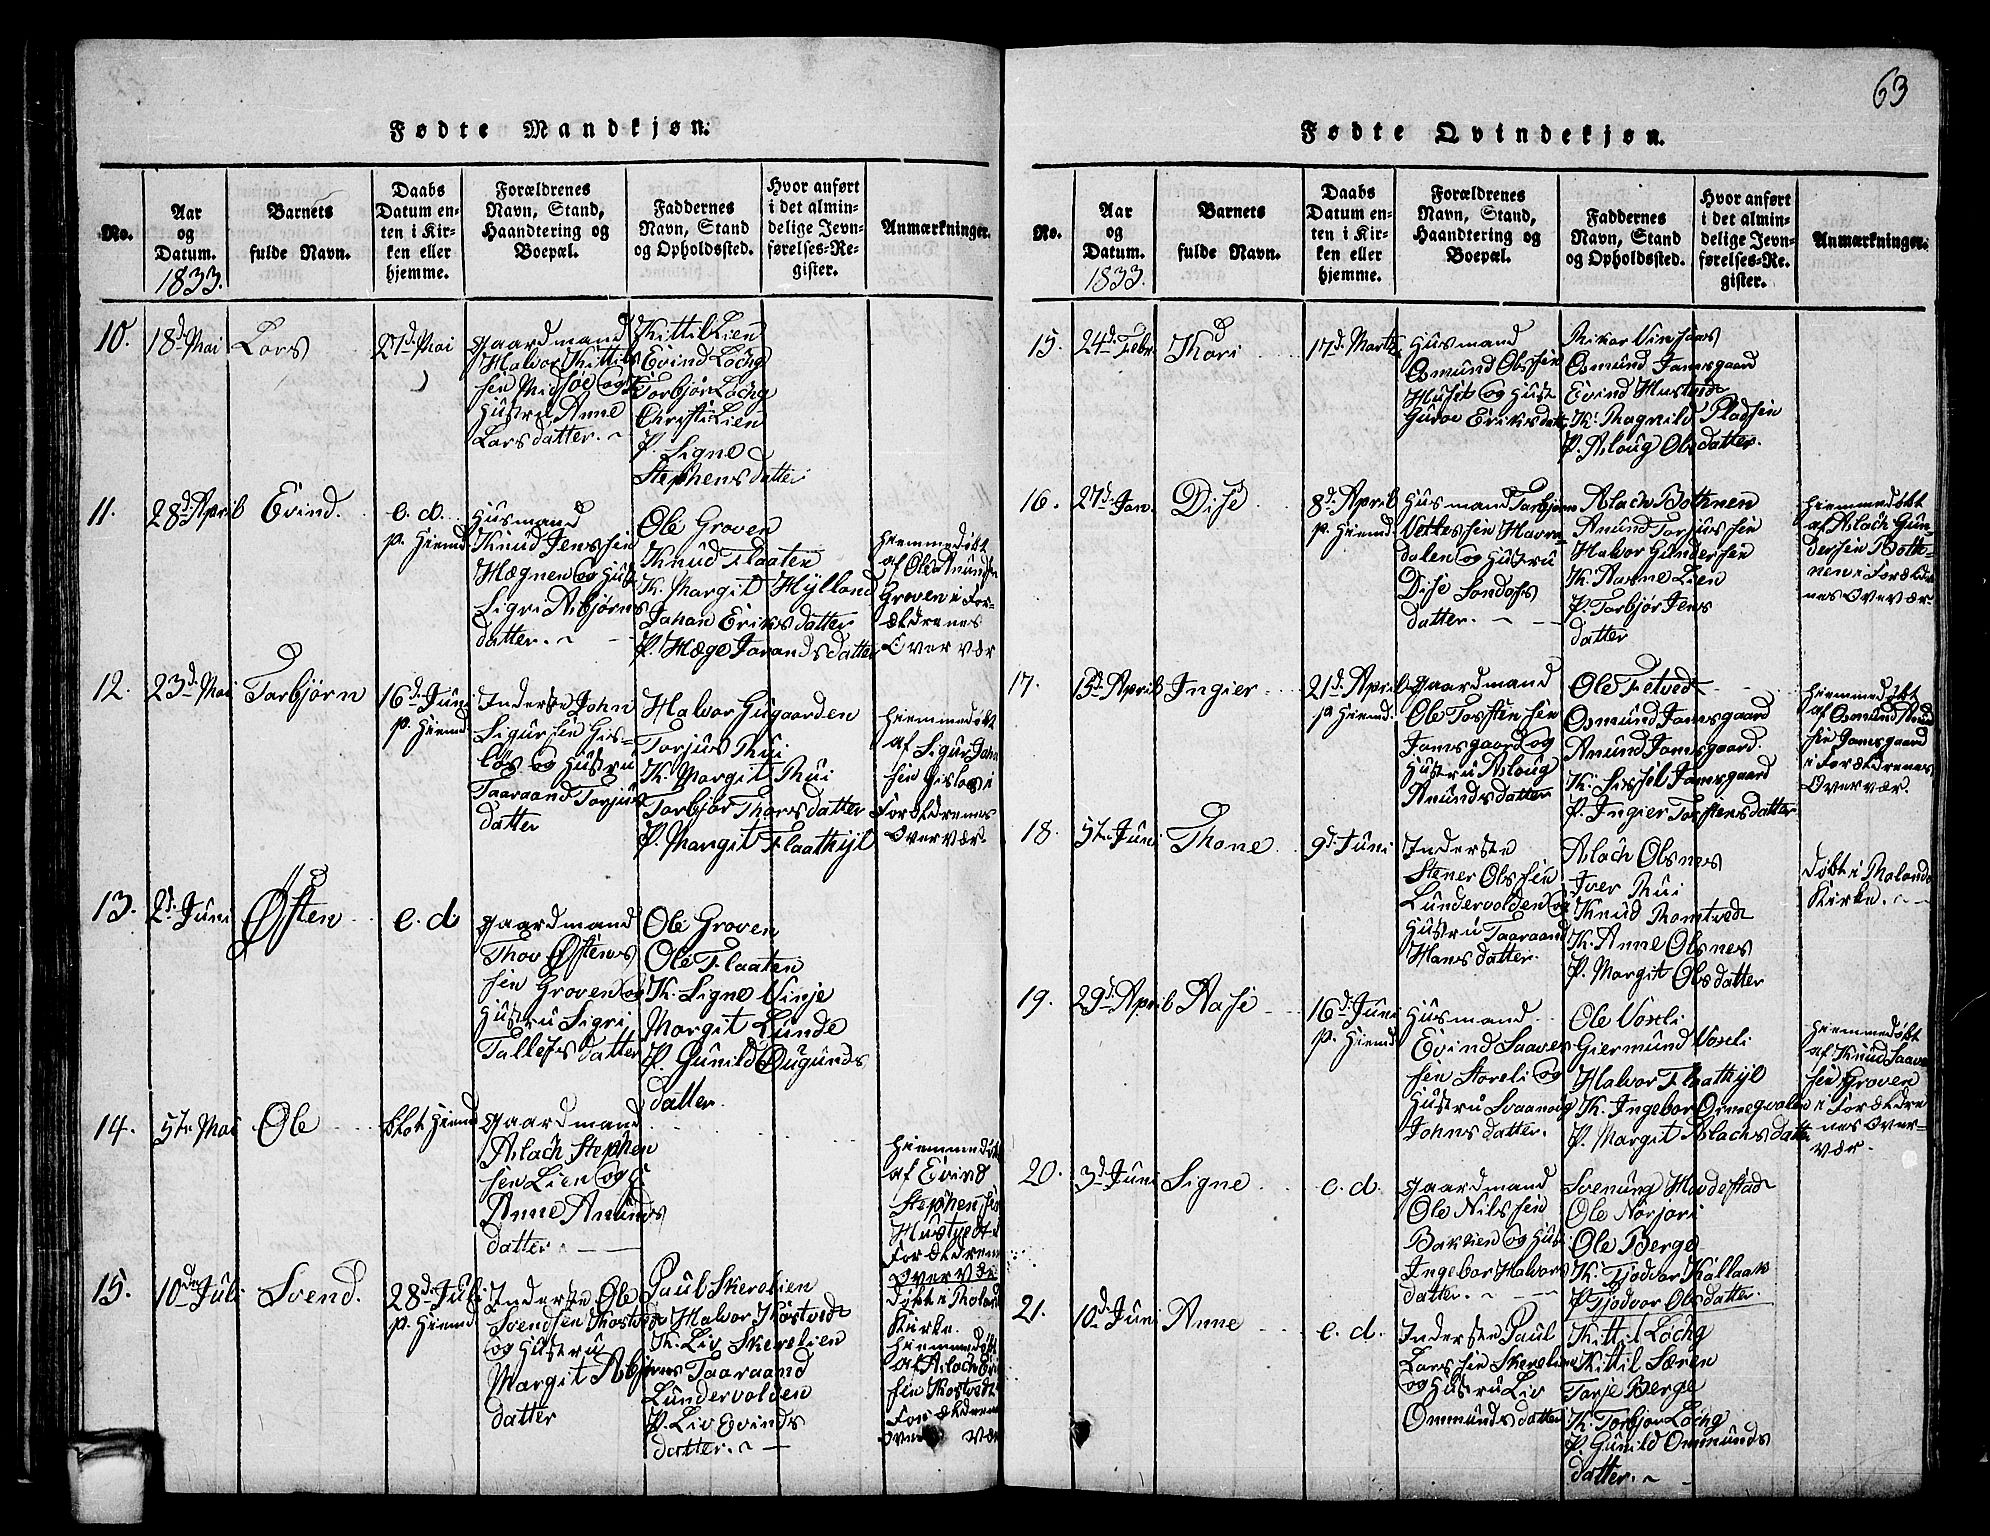 63
Fødte Mandkjøn.
No.
Aar
og
Datum.
1833.
Barnets
fulde Navn.
Daabs
Datum en-
ten i Kir-
ken eller
hjemme.
Forældrenes
Navn, Stand,
Haandtering og
Boepæl.
Faddernes
Navn, Stand
og Opholdssted.
Hvor anført
i det almin-
delige Jevn-
førelses-Re-
gister.
Anmærkninger.
10.
18d Mai
Lars
27d Mai
Gaardmand
Halvor Kittils
sen Midbøe og
Hustru Anne
Larsdatter.
Kittil Lien
Evind Løchg
Torbjør Løchg
Christi Lien
P. Signe
Stephensdatter
11.
28d April
Evind.
e. d.
p. Hiemd
Husmand
Knud Jenssen
Hægnen og Hust
Sigri Asbjørns
datter.
Ole Groven
Knud Flaaten
K. Margit Hylland
Johan Eriksdatter
P. Hæge Jorandsdatter
Hiemmedøbt
af Ole Anunds
Groven i For-
ældrenes
Overvær
12.
23d Mai
Torbjørn
16d Juni
p. Hiemd
Inderste John
Sigursen Gis-
løs og Hustru
Taaraand Torjus
datter
Halvor Hugaarden
Torjus Thui
K. Margit Thui
Torbjør Thorsdatter
P. Margit Flaathyl
Hiemmedøbt
af Sigur John
sen Gisløs i
Forældrenes
Overvær.
13.
2d Juni
Østen
e. d
Gaardmand
Thov Østens
sen Groven og
Hustru Sigri
Tallefsdatter
Ole Groven
Ole Flaaten
K. Signe Vinje
Margit Lunde
P. Gunild Øugunds
datter.
14.
5te Mai
Ole
blot Hiemd
Gaardmand
Aslach Stephen
sen Lien og H
Anne Anunds
datter.
Hiemmedøbt
af Evind
Stephensen
Hustvedt i
Forældrenes
Overvær
15.
10de Juli
Svend.
28d Juli
p. Hiemd
Inderste Ole
Svendsen Kostvedt
og Hustru
Margit Asbjørns
datter
Paul Skerelien
Halvor Kostvedt
K. Liv Skerelien
Taaraand
Lundervolden
P. Liv Evinds
datter.
Døbt i Moland
Kirke.
Hiemmedøbt
af Aslach
sen Kostvedt
Forældrene
overvæ
Fødte Qvindekjøn.
No.
Aar
og
Datum.
1833.
Barnets
fulde Navn.
Daabs
Datum en-
ten i Kir-
ken eller
hjemme.
Forældrenes
Navn, Stand,
Haandtering og
Boepæl.
Faddernes
Navn, Stand
og Opholdssted.
Hvor anført
i det almin-
delige Jevn-
førelses-Re-
gister.
Anmærkninger.
15.
24d Febr.
Kari
17d Marts
Husmand
Osmund Olssen
Huset og Hust
Guroe Eriksdatt.
Rikar Vinsaas
Osmund Jamsgaard
Evind Hustvedt
K. Ragnild Pladsen
P. Asloug Olsdatter.
16.
27d Jan.
Dise
8d April
p. Hiemd
Husmand Torbjørn
Vetlessen Havre-
dalen og Hustru
Dise Sondofs
datter.
Aslach Bothnen
Anund Torjussen
Halvor Gundersen
K. Aanne Lien
P. Torbjør Jens
datter
Hiemmedøbt
af Aslach Gun-
dersen Both-
nen i Forældre
nes Overvær
17.
13d April
Ingier
21d April
p Hiemd
Gaardmand
Ole Torstensen
Jamsgaard og
Hustru Aslaug
Anundsdatter
Ole Tetvedt
Osmund Jamsgaard
Anund Jamsgaard.
K. Sissel Jamsgaard
P. Ingier Torstensdatter
Hiemmedøbt
af Osmund Anund
sen Jamsgaard
i Forældrenes
Overvær.
18.
5te Juni
Thone
9d Juni
Inderste
Stener Olssen
Lundervolden og
Hustru Taaraand
Hansdatter.
Aslach Olsnes
Iver Thui
Knud Romtvedt
K. Anne Olsnes
P. Margit Olsdatter
Døbt i Molands
Kirke.
19.
29d April
Aase
16d Juni
p. Hiemd
Husmand
Evind Saaves
sen Storeli og
Hustru Svaanoug
Johnsdatter.
Ole Voxli
Giermund Voxli
Halvor Flathyl
K. Ingebor Ormegvalen
P. Margit Aslachsdatter
Hiemmedøbt
af Knud Saave
sen Groven
i Forældre
nes Over-
vær.
20.
3d Juni
Signe
e. d.
Gaardmand
Ole Nilssen
Bakken og Hust
Ingebor Halvors
datter.
Svenung Hovdestad
Ole Norjore
Ole Berge
K. Tjodvor Kallaak
P. Tjodvor Olsdatter.
21.
10d Juni
Anne
e. d.
Inderste Paul
Larssen Skerelien
og Hustru Liv
Ommundsdatter
Kittil Løchg
Kittil Søren
Torje Berge
K. Torbjør Løchg
P. Gunild Ommunds
datter.